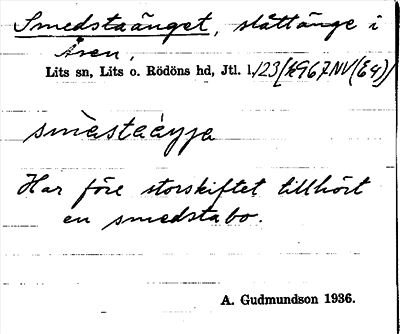 Smedstaänget, slåttänge i
Åren,
Lits sn, Lits o. Rödöns hd, Jtl. l./23
smè̀staáŋŋa
Har före storskiftet tillhört
en smedstabo.
A. Gudmundson 1936.